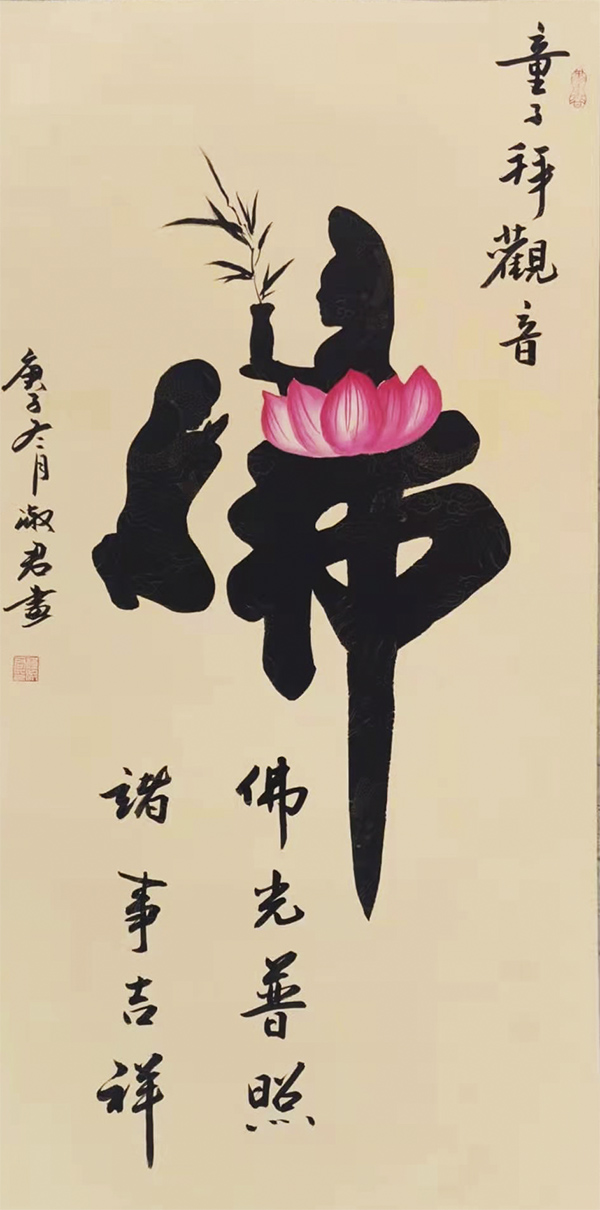 童子拜觀音
佛
佛光普照
諸事吉祥
庚子冬月淑君畫